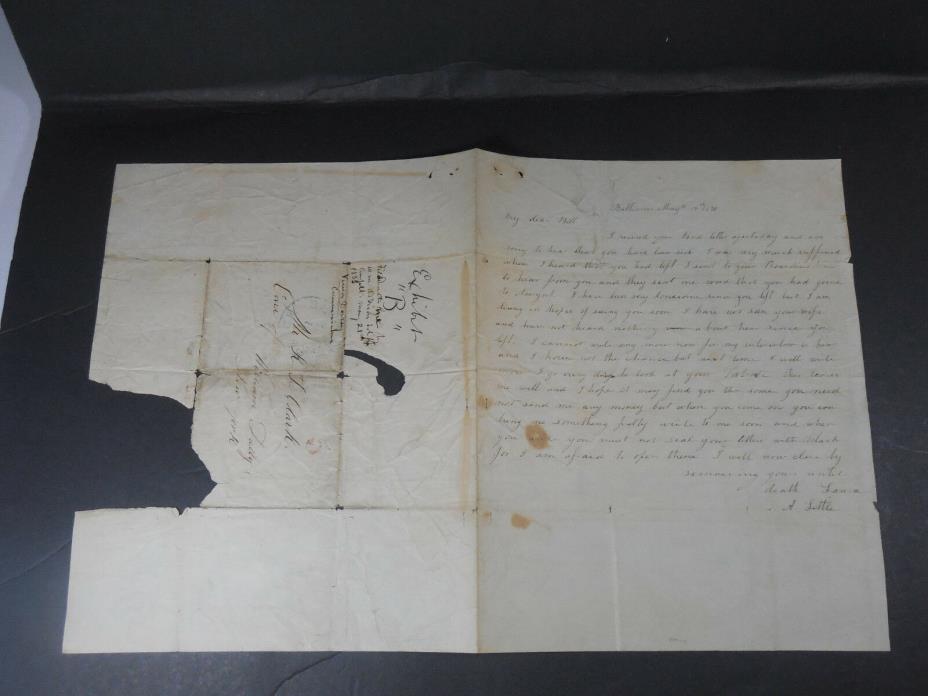 My dear Will
I received your kind letter yesterday and am
sorry to hear that you have been sick I was very much surprised
when I heard that you had left I sent to your
to hear from you and they sent me word that you had gone
to I have been very lonesome since you left but I am
living in hopes of seeing you soon I have not seen your wife
and have not heard nothing about her since you
left I cannot write any more now for my is here
and I have not the chance but next time I will write
more I go every day to look at your This leaves
me well and I hope it may find you the same you need
not send me any money but when you come on you can
bring me something pretty write to me soon and when
you you must not seal your letters with black
for I am afraid to open them I will now close by
remaining yours until
death Laura
A Little
Exhibit
"B"
Commissioner
Clark
Care of
New York